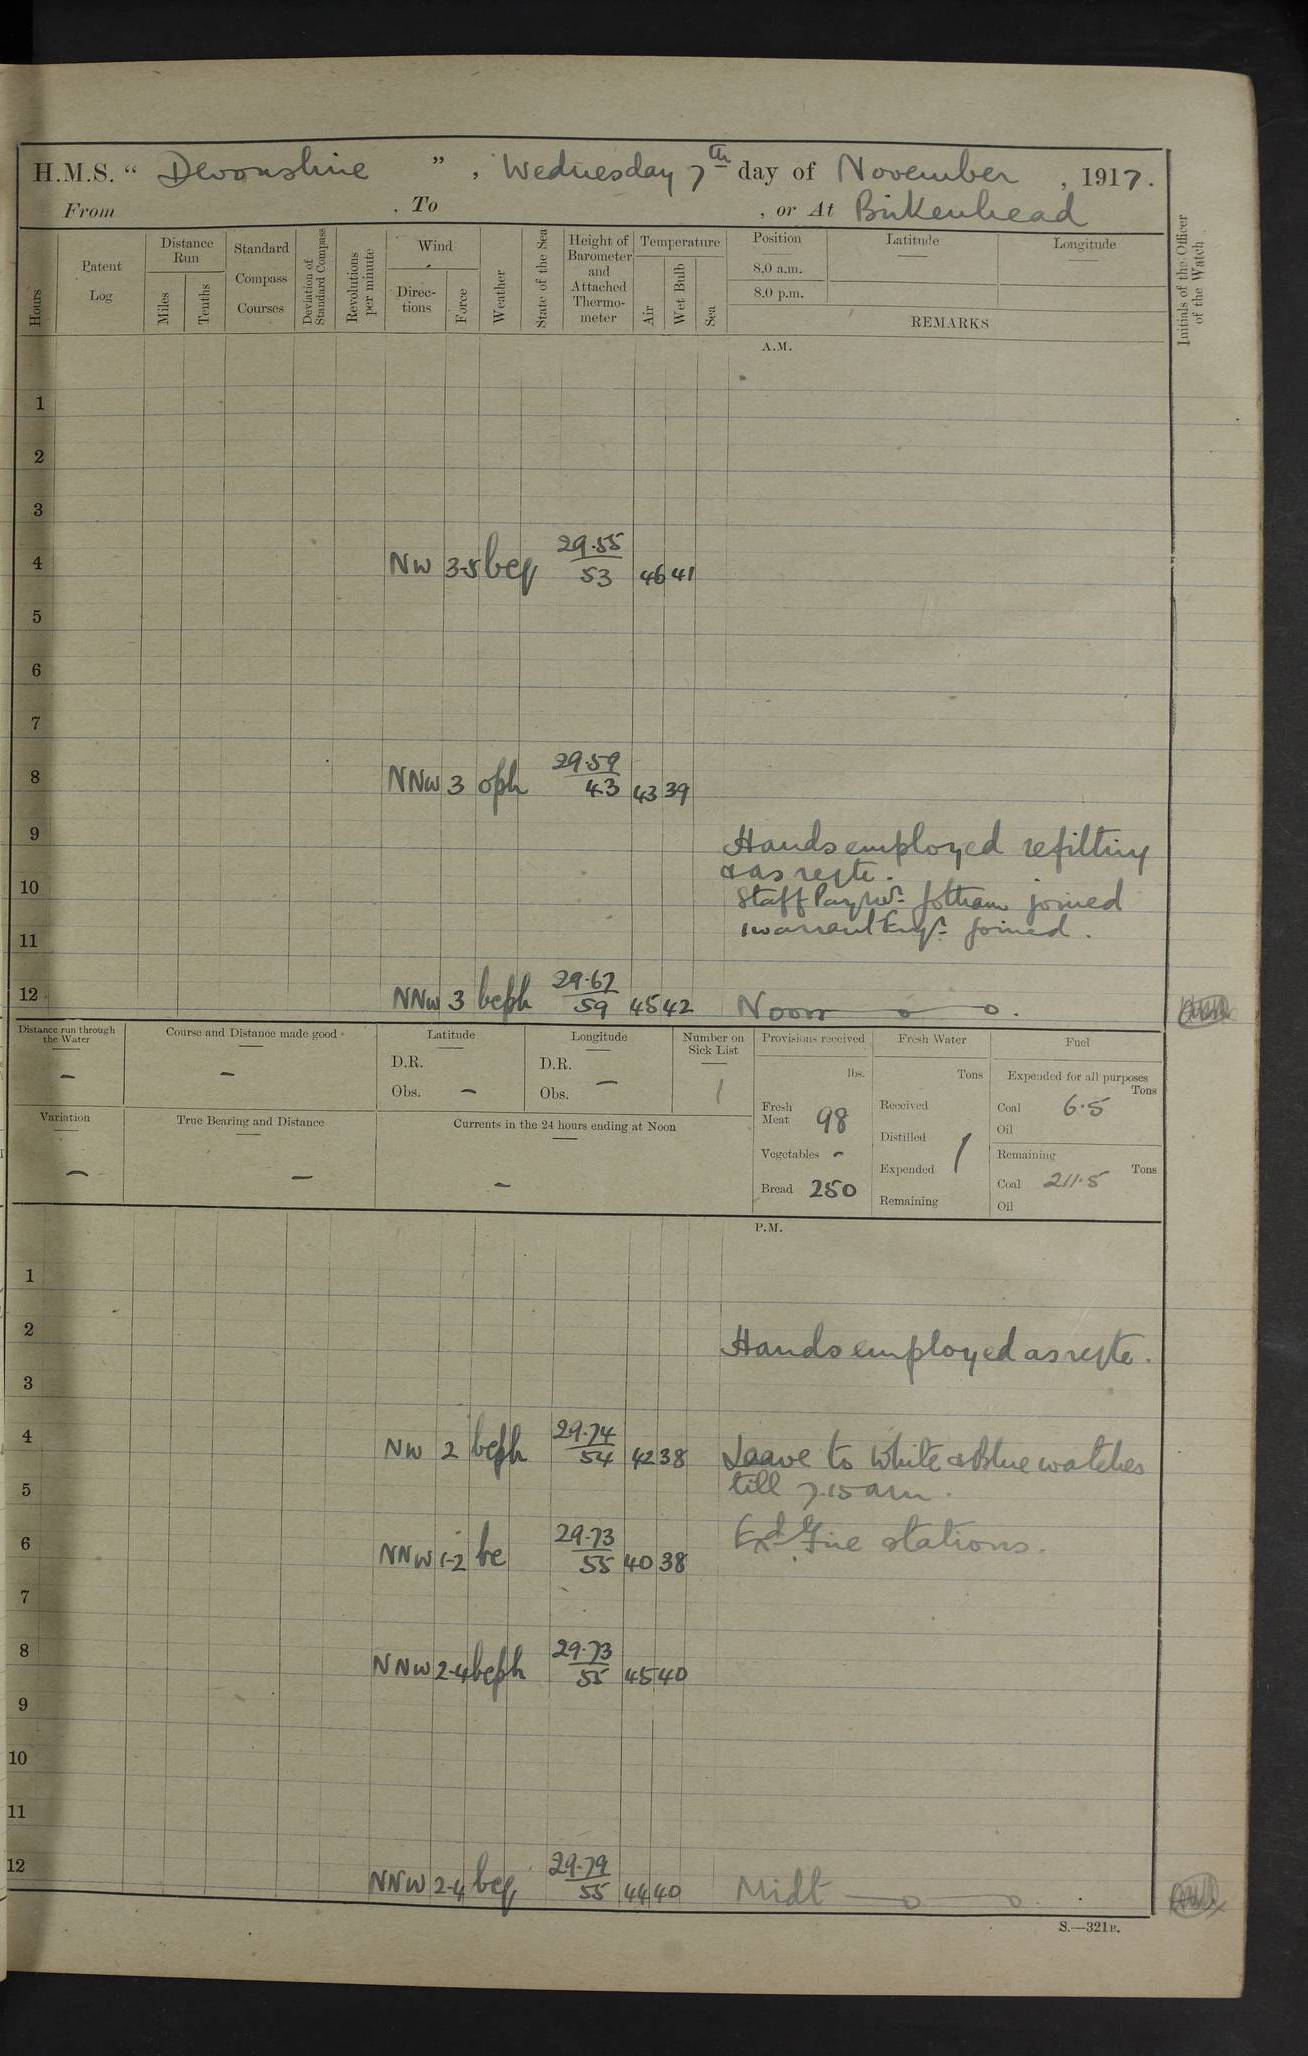 H.M.S. “ Devonshire ” , Wednesday 7th day of November , 1917.
From , To , or At Birkenhead
Hours
Patent Log
Distance Run
Miles
Tenths
Standard Compass Courses
Deviation of Standard Compass
Revolutions per minute
Wind
Direc- tions
Force
Weather
State of the Sea
Height of Barometer and Attached Thermo- meter
Temperature
Air
Wet Bulb
Sea
Position
8.0 a.m.
8.0 p.m.
Latitude
Longitude
REMARKS
Initials of the Officer of the Watch
A.M.
1
2
3
4 NW 3-5 bcq 29.55 / 53 46 41
5
6
7
8 NNW 3 oph 29.59 / 43 43 39
9 Hands employed refitting
& as reqte.
10 Staff Paymr. Jotham joined
1 Warrant Engr. joined.
11
12 NNW 3 bcph 29.67 / 59 45 42 Noon
Distance run through the Water
–
Course and Distance made good
–
Latitude
D.R.
Obs. –
Longitude
D.R.
Obs. –
Number on Sick List
1
Provisions received
lbs.
Fresh Meat 98
Vegetables -
Bread 250
Fresh Water
Tons
Received
Distilled
Expended
Remaining
Fuel
Expended for all purposes
Tons
Coal 6.5
Oil
Remaining
Tons
Coal 211.5
Oil
Variation
–
True Bearing and Distance
–
Currents in the 24 hours ending at Noon
–
P.M.
1
2 Hands employed as reqte.
3
4 NW 2 bcph 29.74 / 54 42 38 Leave to White & Blue watches
till 7.15 am.
5
6 NNW 1-2 bc 29.73 / 55 40 38 Exd Fire stations.
7
8 NNW 2-4 bcph 29.73 / 55 45 40
9
10
11
12 NNW 2-4 bcq 29.79 / 55 44 40 Midt
S.—321B.